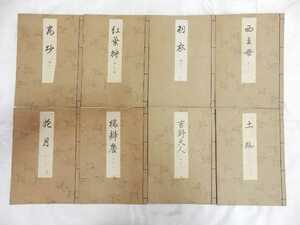 高砂
紅葉狩
羽衣
西王母
花月
橋弁慶
吉野天人
土蜘